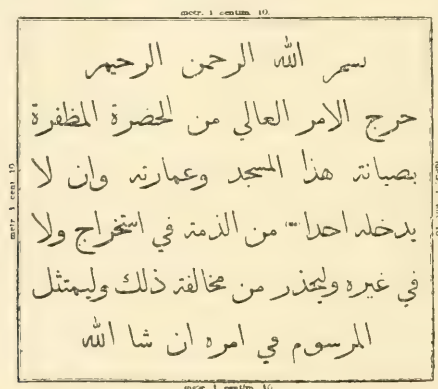 metr. 1 centim. 10.
بسم الله الرحمن الرحيم
حرج الامر العالي من الحضرة المظفرة
بصيانة هذا المسجد وعمارته وان لا
يدخله احدا من الذمة في استخراج ولا
في غيره وليحذر من مخالفة ذلك وليمتثل
المرسوم في امره ان شا الله
metr. 1 cent. 10.
metr. 1 centim. 10.